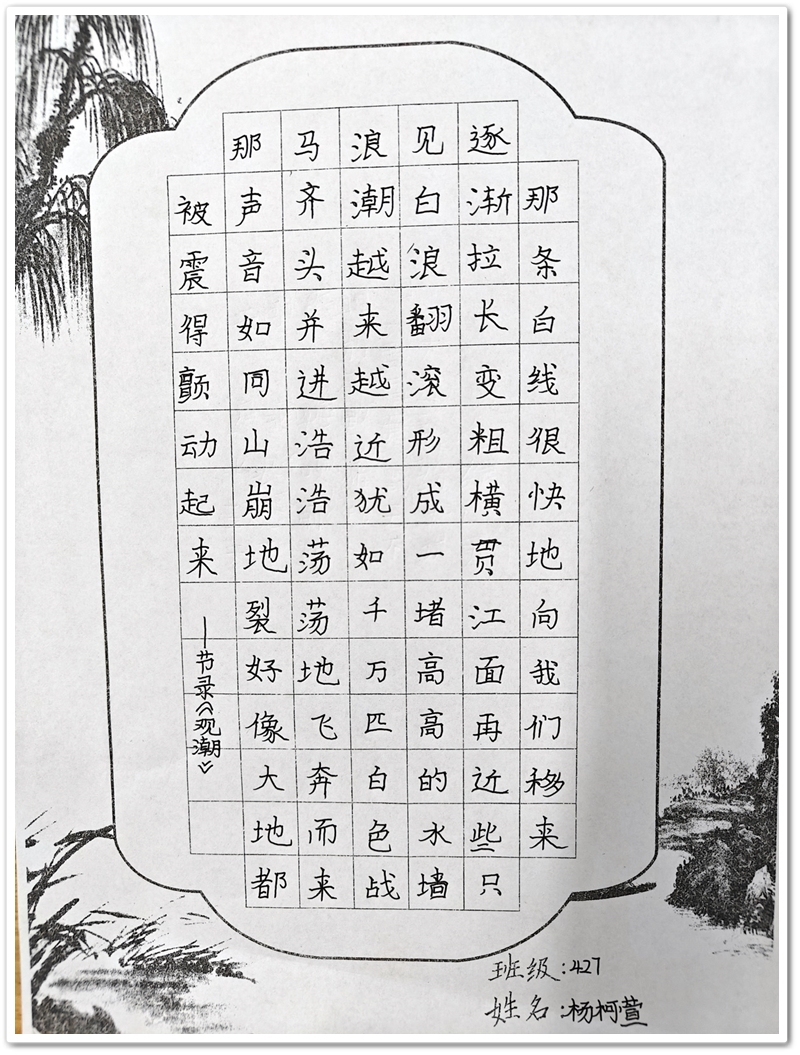 那条白线很快地向我们移来
逐渐拉长变粗横贯江面再近些只
见白浪翻滚形成一堵高高的水墙
浪潮越来越近犹如千万匹白色战
马齐头并进浩浩荡荡地飞奔而来
那声音如同山崩地裂好像大地都
被震得颤动起来
——节录《观潮》
班级:427
姓名:杨柯萱